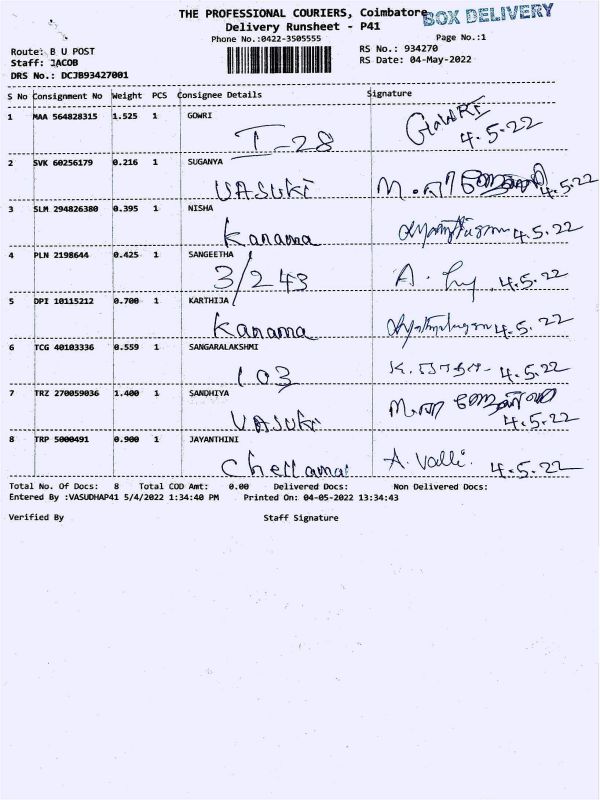 THE PROFESSIONAL COURIERS, Coimbatore
BOX DELIVERY
Delivery Runsheet - P41
Phone No.:0422-3505555
Page No.:1
Route: B U POST
RS No.: 934270
Staff: JACOB
RS Date: 04-May-2022
DRS No.: DCJB93427001
S No Consignment No Weight PCS Consignee Details Signature
1 MAA 564828315 1.525 1 GOWRI
I-28 GOWRI 4.5.22
2 SVK 60256179 0.216 1 SUGANYA
VASUKI 4.5.22
3 SLM 294826380 0.395 1 NISHA
Kanama 4.5.22
4 PLN 2198644 0.425 1 SANGEETHA
3/243 A. 4.5.22
5 DPI 10115212 0.700 1 KARTHIJA
Kanama 4.5.22
6 TCG 40103336 0.559 1 SANGARALAKSHMI
103 4.5.22
7 TRZ 270059036 1.400 1 SANDHIYA
VASUKI 4.5.22
8 TRP 5000491 0.900 1 JAYANTHINI
Chellama A. Valli. 4.5.22
Total No. Of Docs: 8 Total COD Amt: 0.00 Delivered Docs: Non Delivered Docs:
Entered By :VASUDHAP41 5/4/2022 1:34:40 PM Printed On: 04-05-2022 13:34:43
Verified By Staff Signature